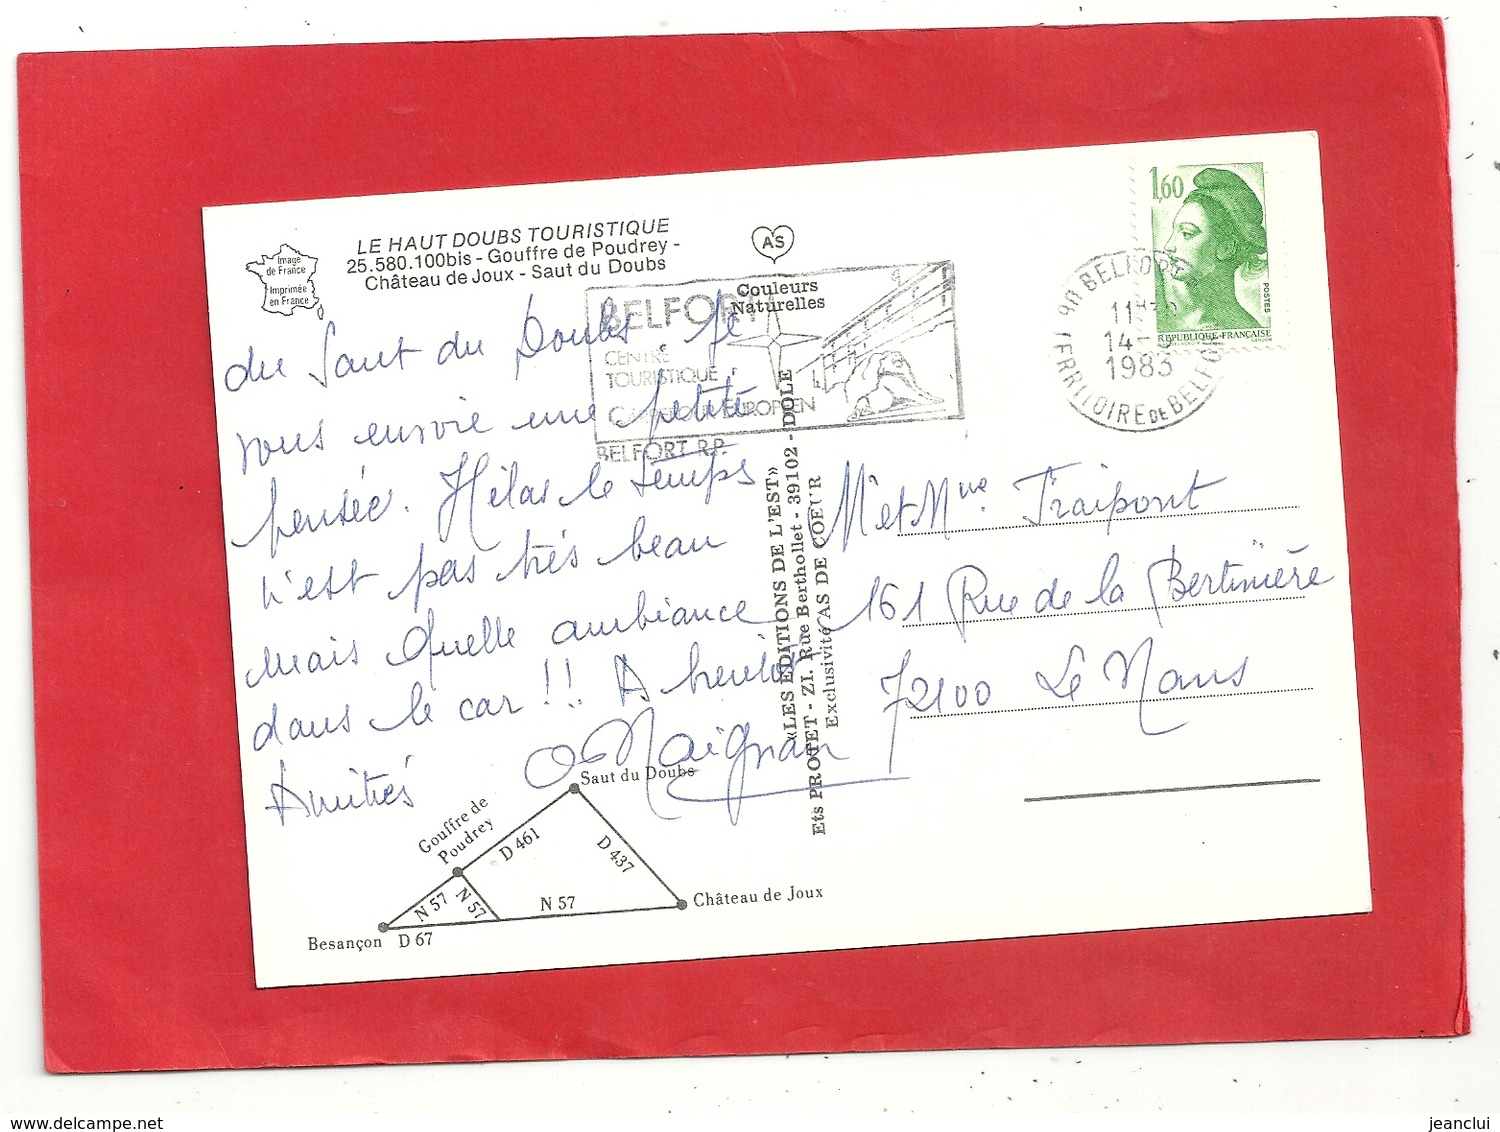 Image
de France
Imprimée
en France
LE HAUT DOUBS TOURISTIQUE
25.580.100bis - Gouffre de Poudrey -
Château de Joux - Saut du Doubs
AS
Couleurs
Naturelles
BELFORT
CENTRE
TOURISTIQUE
EUROPEEN
BELFORT R.P.
1,60
POSTES
REPUBLIQUE-FRANÇAISE
90 BELFORT R.P.
11H30
14-
1983
TERRITOIRE DE BELFORT
du Saut du Doubs, je
vous envoie une petite
pensée. Hélas le temps
n'est pas très beau
mais quelle ambiance
dans le car !! A bientôt
Amitiés
Maignan
«LES EDITIONS DE L'EST»
Ets PROTET - ZI. Rue Berthollet - 39102 - DOLE
Exclusivité AS DE COEUR
Mr et Mme Traipont
161 Rue de la Bertinière
72100 Le Mans
Saut du Doubs
Gouffre de
Poudrey
D 461
D 437
N 57
N 57
N 57
Château de Joux
Besançon
D 67
delcampe.net
jeanclui